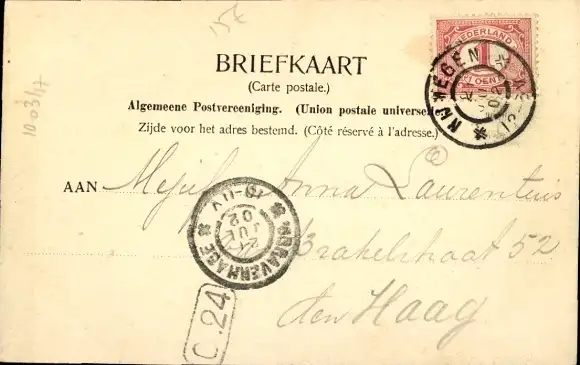 15c
BRIEFKAART
(Carte postale.)
Algemeene Postvereeniging. (Union postale universelle
Zijde voor het adres bestemd. (Côté réservé à l'adresse.)
NEDERLAND
1
CENT
NIJMEGEN
02
AAN Mejuf. Anna Laurentius
Brakelstraat 52
den Haag
'SGRAVENHAGE
24
JUL
02
C.24